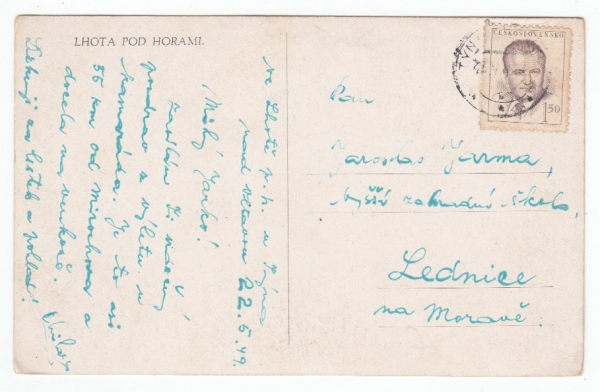 LHOTA POD HORAMI.
ČESKOSLOVENSKO
1.50
Ve Lhotě p. h. u Týna
nad Vltavou 22.5.49.
Milý Jarko!
zasílám Ti vřelý
pozdrav z výletu u
kamaráda. Je to asi
56 km od
docela na
Děkuji za lístek a pohled!
Pan
Jaroslav Jarma,
vyšší zahradní škola,
Lednice
na Moravě.